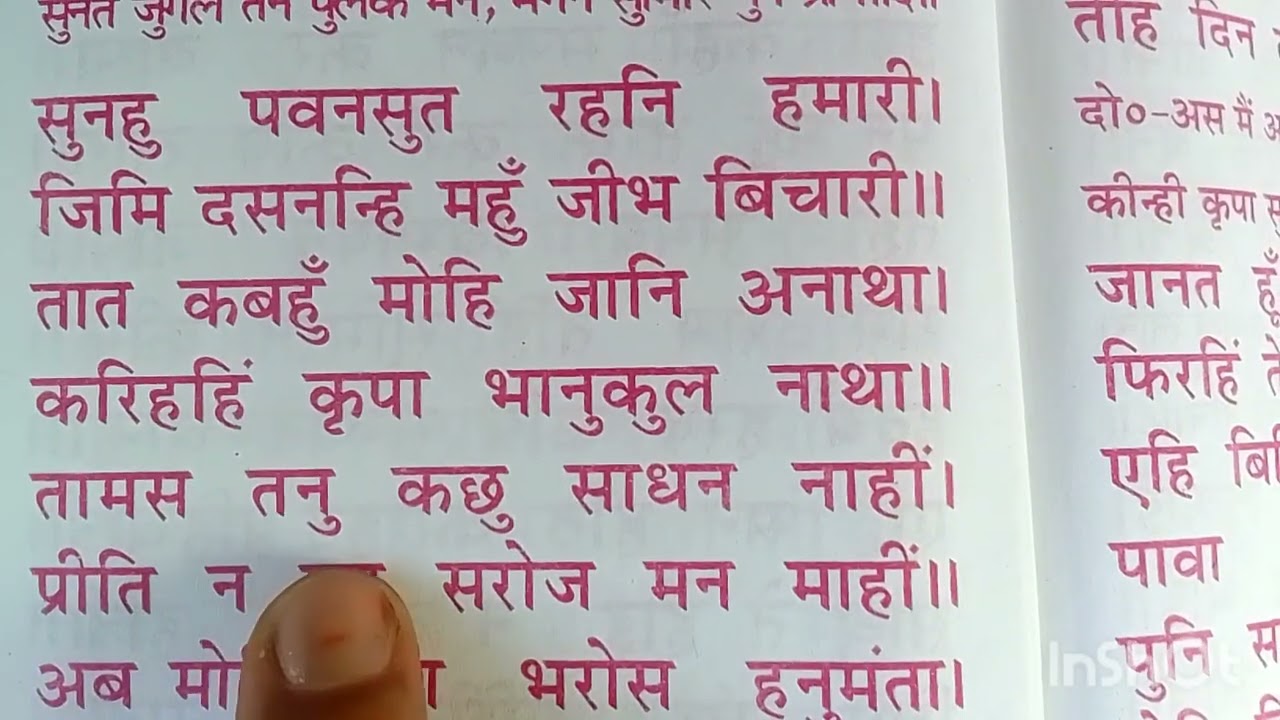 सुनहु पवनसुत रहनि हमारी।
जिमि दसनन्हि महुँ जीभ बिचारी॥
तात कबहुँ मोहि जानि अनाथा।
करिहहिं कृपा भानुकुल नाथा॥
तामस तनु कछु साधन नाहीं।
प्रीति न सरोज मन माहीं॥
अब भरोस हनुमंता।
ताह दिन
दो०-अस मैं
कीन्ही कृपा
जानत हूँ
फिरहिं
एहि
पावा
पुनि
InShot